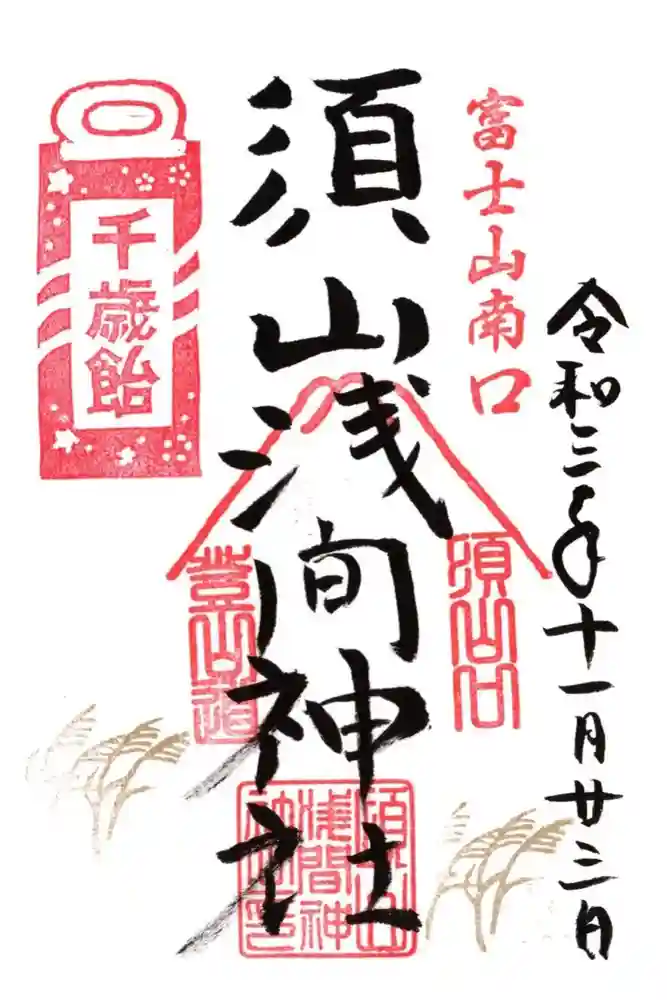 令和三年十一月廿三日
富士山南口
須山浅間神社
須山口
登山道
千歳飴
須山
浅間神
社之印